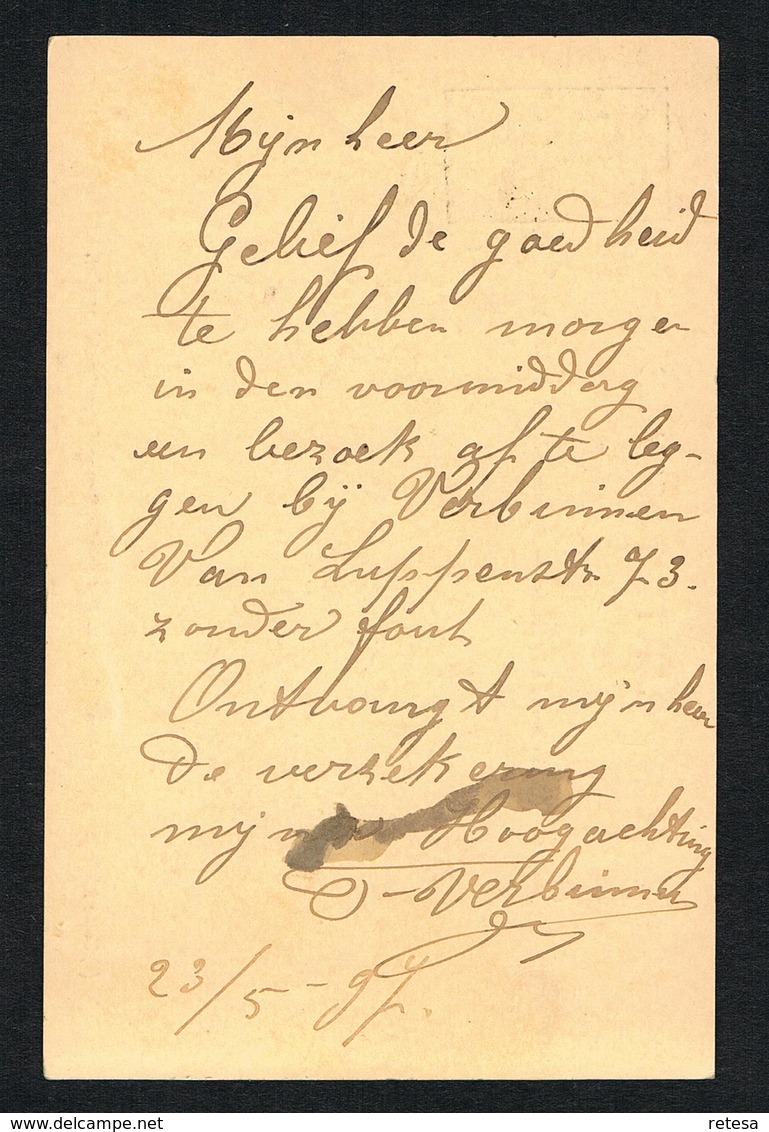 Mijn heer
Gelief de goedheid
te hebben morgen
in den voormiddag
een bezoek af te leg-
gen bij Verbinnen
Van Luppenstr 73.
zonder fout
Ontvangt mijn heer
de verzekering
Hoogachting
Verbinnen
23/5-97.
delcampe.net
retesa